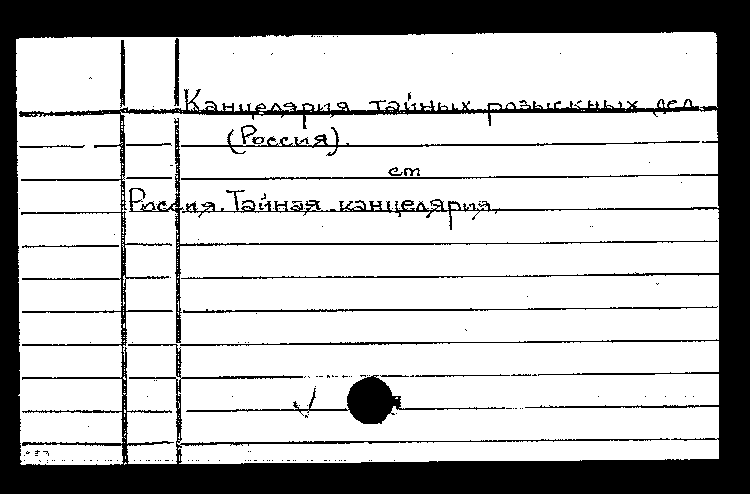 Канцелярия тайных розыскных дел
(Россия).
см
Россия. Тайная канцелярия.